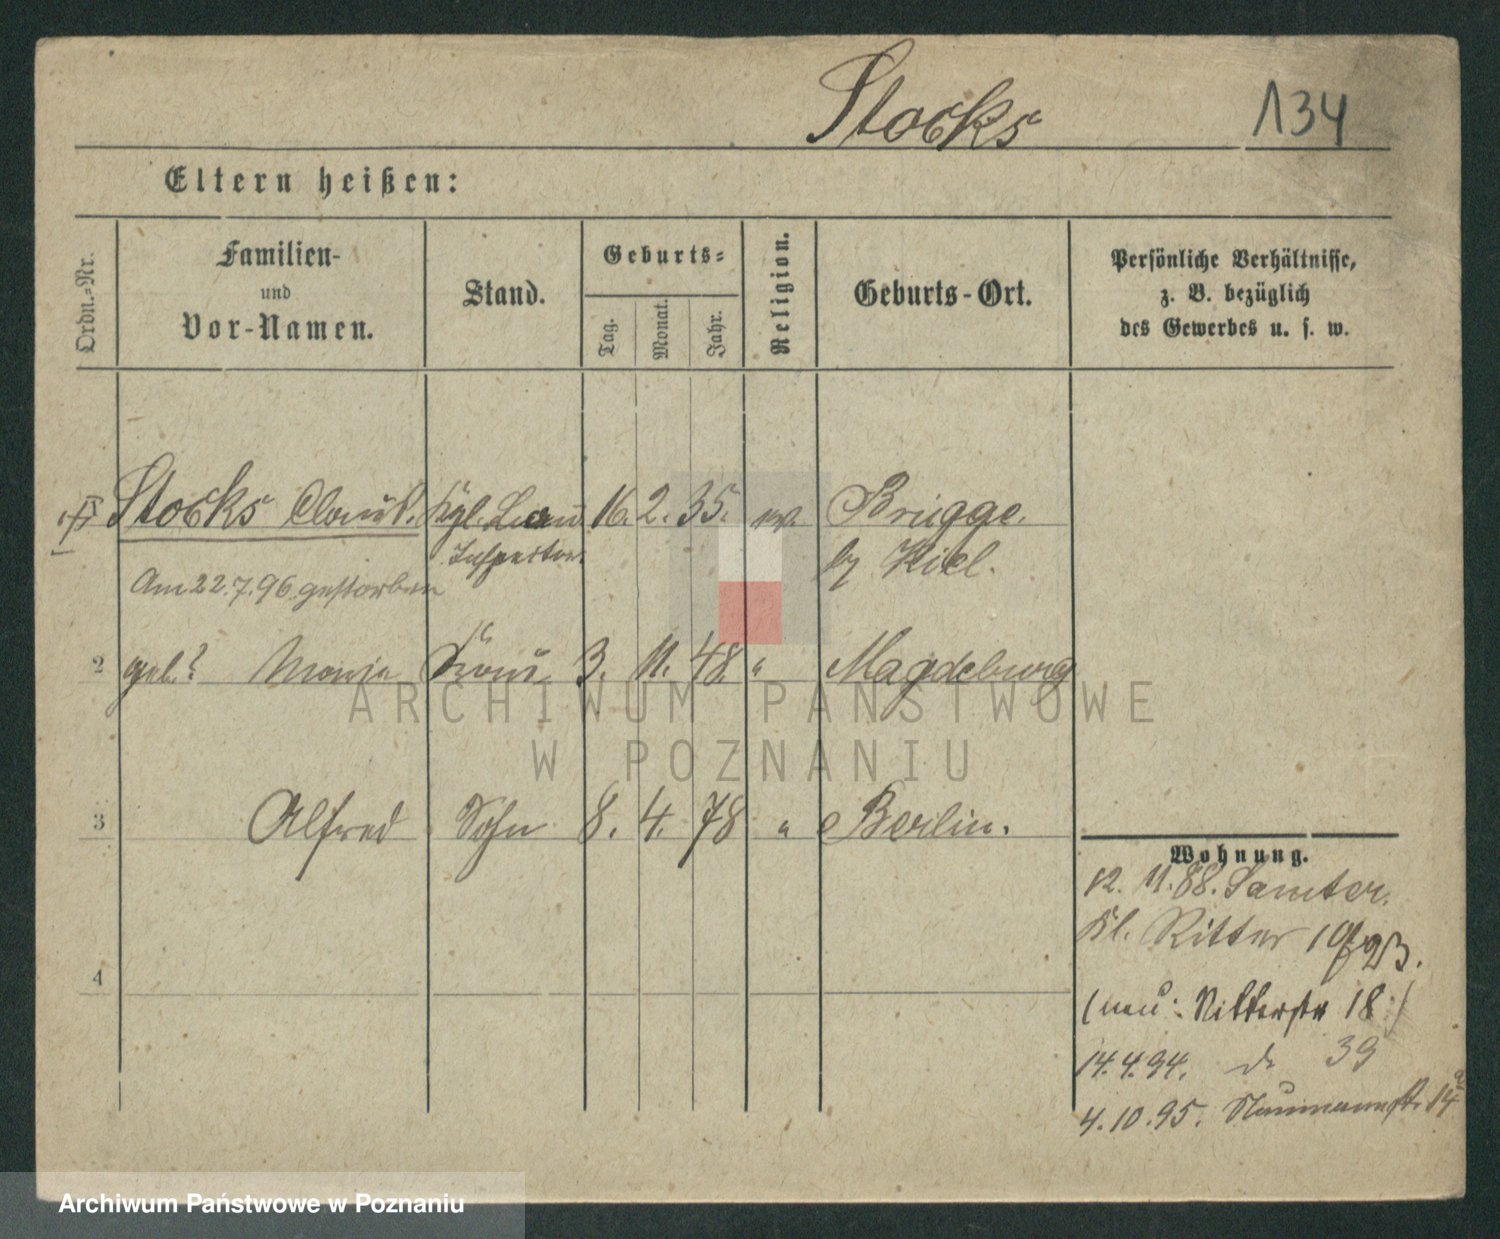 Stocks 134
Eltern heißen:
Ordn.-Nr.
Familien-
und
Vor-Namen.
Stand.
Geburts-
Tag.
Monat.
Jahr.
Religion.
Geburts-Ort.
Persönliche Verhältnisse,
z. B. bezüglich
des Gewerbes u. s. w.
Stocks Claus. Kgl. 16. 2. 35. ev. Brügge.
Inspector. b/ Kiel.
Am 22.7.96 gestorben
2 geb.? Frau 3. 11. 48. " Magdeburg
3 Alfred Sohn 8. 4. 78 " Berlin.
4
Wohnung.
12. 11. 88. Samter.
Kl. Ritter 10
(neu: Ritterstr 18/
14.4.94. do 39
4.10.95. Naumannstr. 14
ARCHIWUM PAŃSTWOWE
W POZNANIU
Archiwum Państwowe w Poznaniu